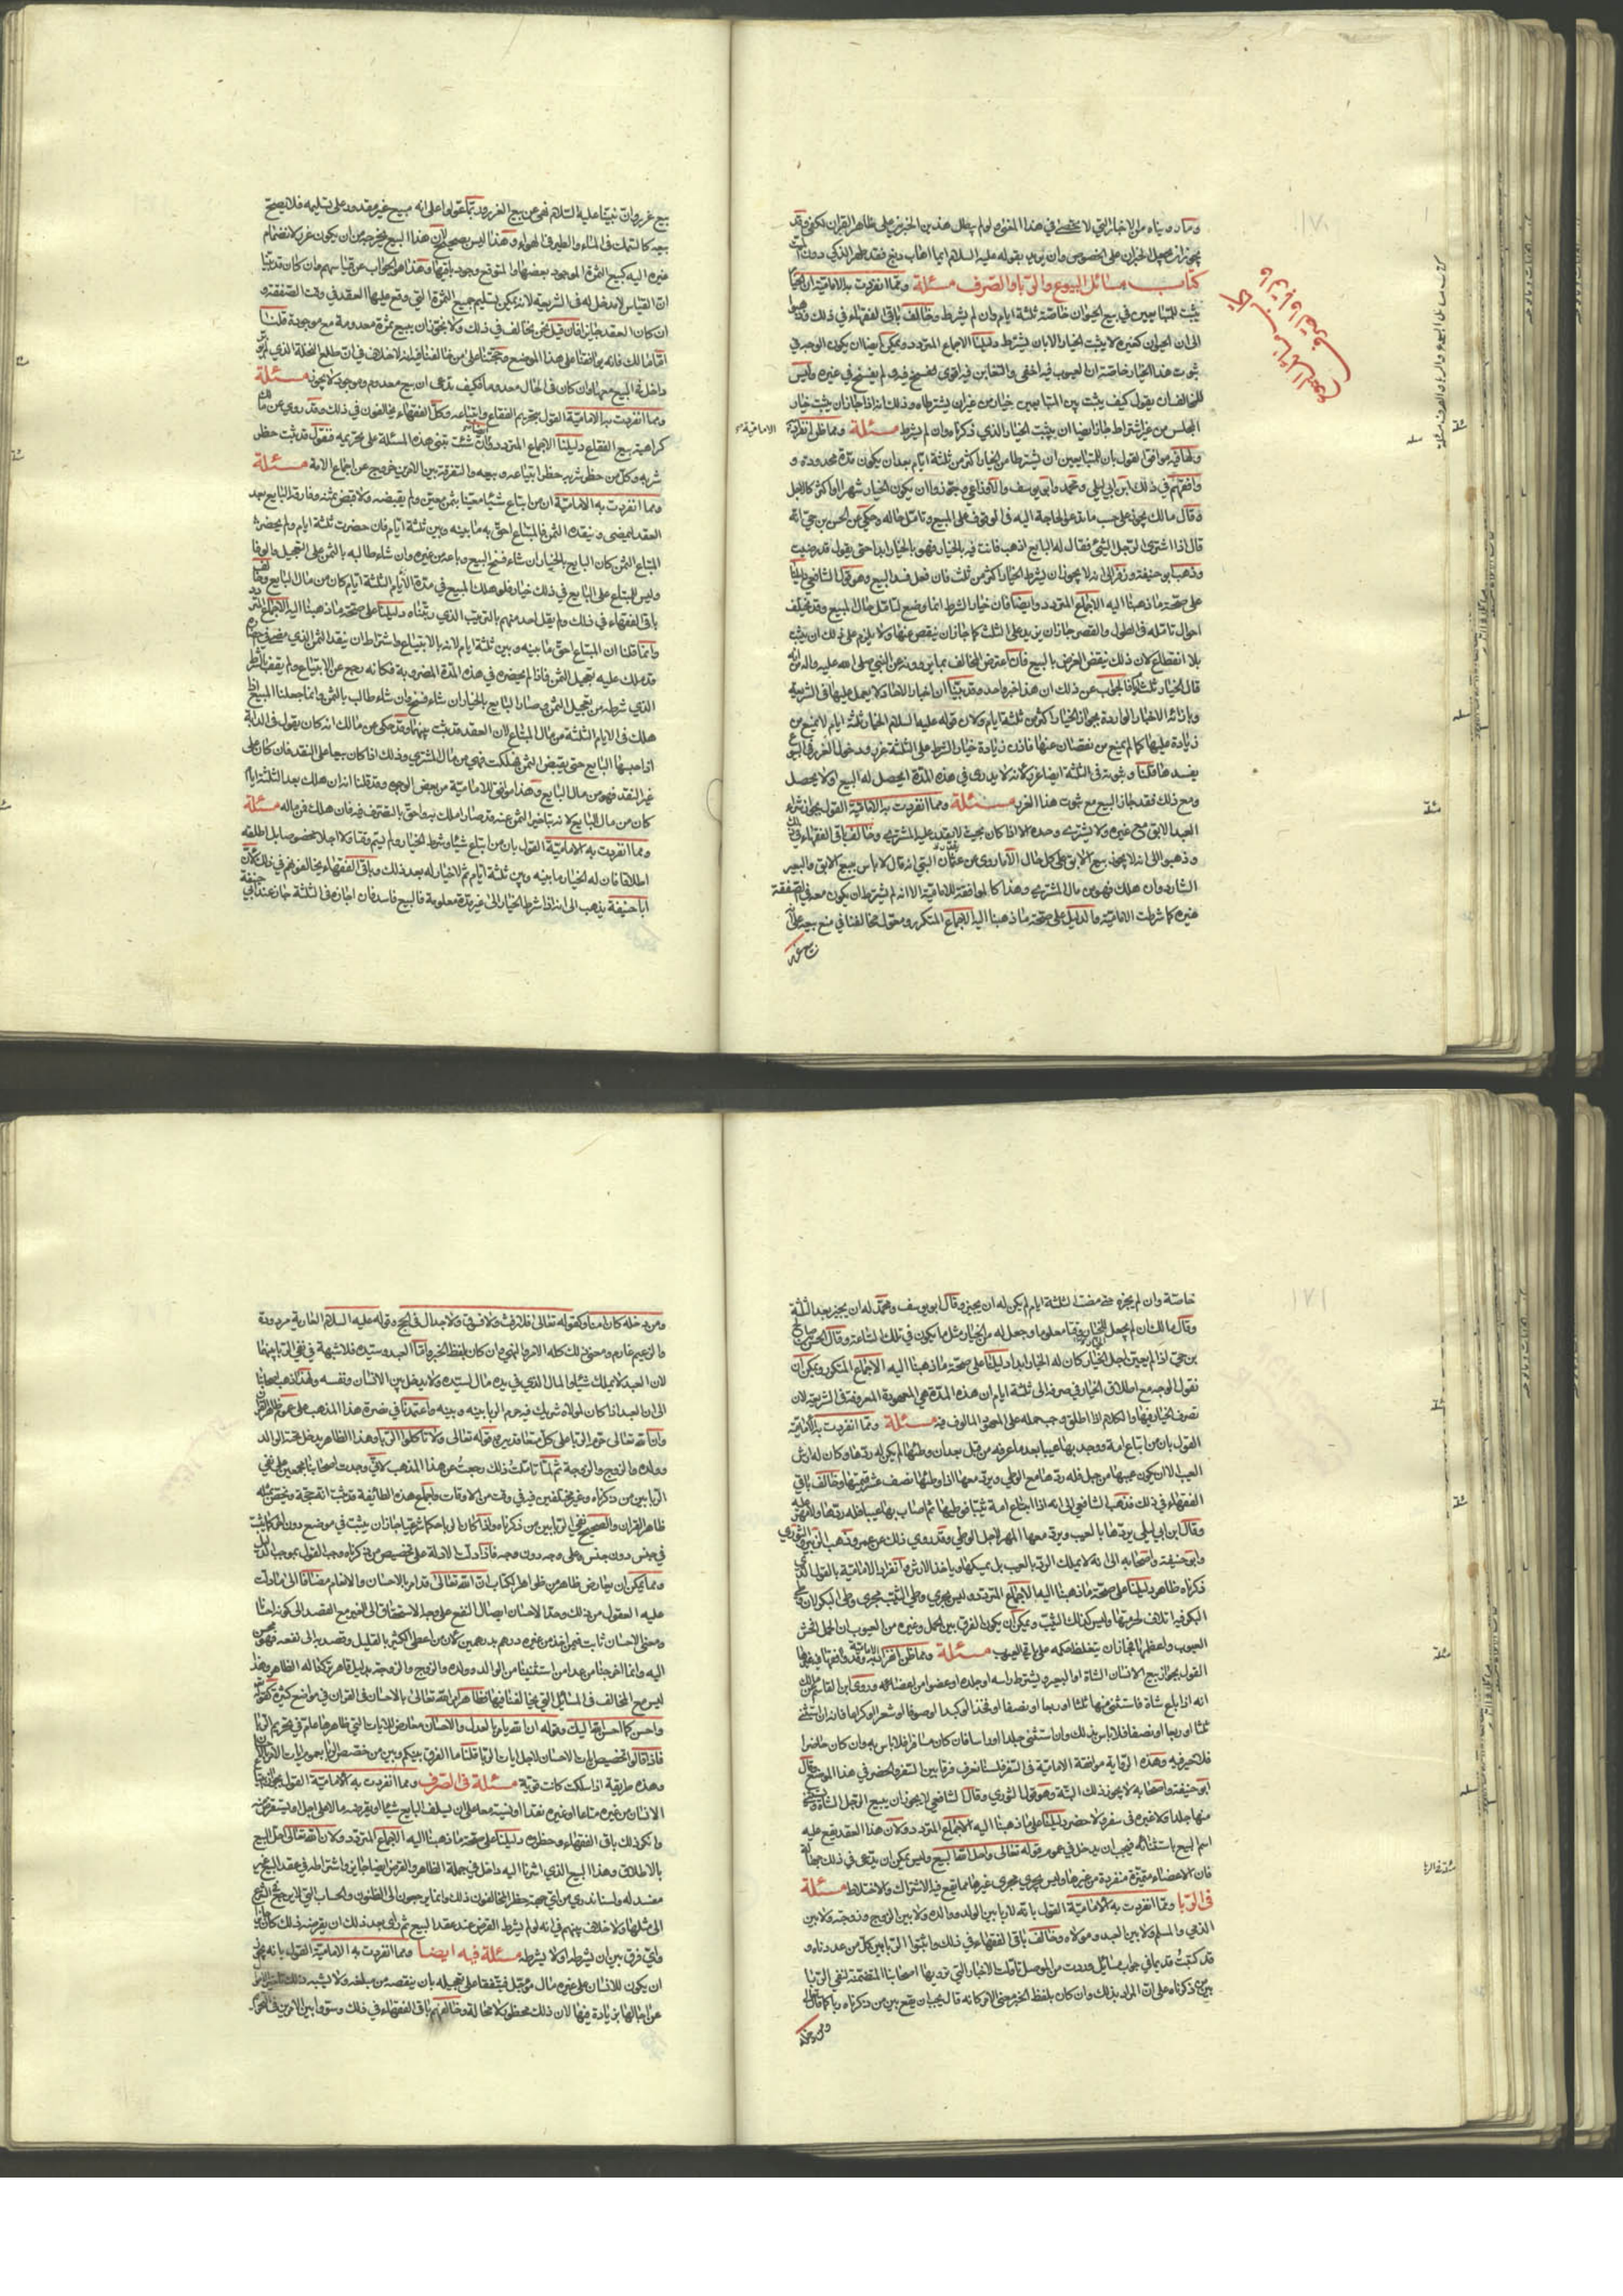 وما رويناه من الاخبار التي لا تحصى في هذا المعنى ولو لم يبطل هذين الخبرين على ظاهر القران لكفى وقد
يجوز ان يحمل الخبران على الخصوص وان يريد بقوله عليه السلام ايما اهاب دبغ فقد طهر المذكى دون الميت
كتاب مسائل البيوع والربا والصرف مسئلة ومما انفردت به الامامية ان الخيار
يثبت للمتبايعين في بيع الحيوان خاصة ثلثة ايام وان لم يشترط وخالف باقي الفقهاء في ذلك وذهبوا
الى ان الحيوان كغيره لا يثبت الخيار الا بان يشترط دليلنا الاجماع المتردد ويمكن ايضا ان يكون الوجه في
ثبوت هذا الخيار خاصة ان العيوب فيه اخفى والتغابن فيه اقوى ففسح فيه ولم يفسح في غيره وليس
للمخالف ان يقول كيف يثبت بين المتبايعين خيار من غير ان يشترطاه وذلك انه اذا جاز ان يثبت خيار
المجلس من غير اشتراط جاز ايضا ان يثبت الخيار الذي ذكرناه وان لم يشرط مسئلة ومما ظن انفراد
الامامية
ولها فيه موافق القول بان للمتبايعين ان يشترطا من الخيار اكثر من ثلثة ايام بعد ان يكون مدة محدودة و
وافقهم في ذلك ابن ابي ليلى ومحمد وابو يوسف والاوزاعي وجوزوا ان يكون الخيار شهرا او اكثر كالاجل
وقال مالك يجوز على حسب ما تدعو الحاجة اليه في الوقوف على المبيع وتامل حاله وحكي عن الحسن بن حي انه
قال اذا اشترى الرجل الشئ فقال له البايع اذهب فانت فيه بالخيار فهو بالخيار ابدا حتى يقول قد رضيت
وذهب ابو حنيفة وزفر الى انه لا يجوز ان يشترط الخيار اكثر من ثلث فان فعل فسد البيع وهو قول الشافعي دليلنا
على صحة ما ذهبنا اليه الاجماع المتردد وايضا فان خيار الشرط انما وضع لتامل حال المبيع وقد يختلف
احوال تامله في الطول والقصر فجاز ان يزيد على الثلث كما جاز ان ينقص عنها ولا يلزم على ذلك ان يثبت
بلا انقطاع لان ذلك ينقض الغرض بالبيع فان اعترض المخالف بما يروونه عن النبي صلى الله عليه واله من انه
قال الخيار ثلث فالجواب عن ذلك ان هذا خبر واحد وقد بينا ان اخبار الاحاد لا يعمل عليها في الشريعة
وبازائه الاخبار الواردة بجواز الخيار اكثر من ثلثة ايام ولان قوله عليه السلام الخيار ثلثة ايام لا يمنع من
زيادة عليها كما لم يمنع من نقصان عنها فان زيادة خيار الشرط على الثلثة غرر ودخول الغرر في البيوع
يفسده قلنا وثبوته في الثلثة ايضا غرر لانه لا يدري في هذه المدة ايحصل له البيع او لا يحصل
ومع ذلك فقد جاز البيع مع ثبوت هذا الغرر مسئلة ومما انفردت به الامامية القول بجواز شراء
العبد الابق مع غيره ولا يشترى وحده الا اذا كان بحيث لا يقدر عليه المشتري وخالف باقي الفقهاء في ذلك
وذهبوا الى انه لا يجوز بيع الابق على كل حال الا ما روي عن عثمان البتي انه قال لا باس ببيع الابق والبعير
الشارد وان هلك فهو من مال المشتري وهذا كالموافقة للامامية الا انه لم يشترط ان يكون معه في الصفقة
غيره كما شرطت الامامية والدليل على صحة ما ذهبنا اليه الاجماع المتكرر ومعول مخالفنا في منع بيعه على انه
بيع غرر
بيع غرر وان نبينا عليه السلام نهى عن بيع الغرر وربما عولوا على انه مبيع غير مقدور على تسليمه فلا يصح
بيعه كالسمك في الماء والطير في الهواء وهذا ليس بصحيح لان هذا البيع يخرجه من ان يكون غررا لانضمام
غيره اليه كبيع الثمرة الموجود بعضها والمتوقع وجود باقيها وهذا هو الجواب عن قياسهم وان كان قد بينا
ان القياس لا مدخل له في الشريعة لانه يمكن تسليم جميع الثمرة التي وقع عليها العقد في وقت الصفقة و
ان كان العقد جايزا فان قيل نحن نخالف في ذلك ولا نجوز ان يبيع ثمرة معدومة مع موجودة قلنا
اما مالك فانه يوافقنا على هذا الموضع وحجتنا على من خالفنا فيه انه لا خلاف في ان طلع النخلة الذي لم يؤبر
داخل في المبيع معها وان كان في الحال معدوما فكيف يدعى ان بيع معدوم وموجود لا يجوز مسئلة
ومما انفردت به الامامية القول بتحريم الفقاع وابتياعه وكل الفقهاء يخالفون في ذلك وقد روي عن مالك
كراهية بيع الفقاع دليلنا الاجماع المتردد وان شئت تبنى هذه المسئلة على تحريمه فنقول قد ثبت حظر
شربه وكل من حظر شربه حظر ابتياعه وبيعه والتفرقة بين الامرين خروج عن اجماع الامة مسئلة
ومما انفردت به الامامية ان من ابتاع شيئا معينا بثمن معين ولم يقبضه ولا قبض ثمنه وفارقه البايع بعد
العقد ليمضي وينقده الثمن فالمبتاع احق به ما بينه وبين ثلثة ايام فان حضرت ثلثة ايام ولم يحضره
المبتاع الثمن كان البايع بالخيار ان شاء فسخ البيع وباعه من غيره وان شاء طالبه بالثمن على التعجيل والوفا
وليس للمبتاع على البايع في ذلك خيار فلو هلك المبيع في مدة الايام الثلثة ايام كان من مال المبتاع وخالف
باقي الفقهاء في ذلك ولم يقل احد منهم بالترتيب الذي رتبناه دليلنا على صحة ما ذهبنا اليه الاجماع المتردد
وانما قلنا ان المبتاع احق ما بينه وبين ثلثة ايام لانه بالابتياع واشتراط ان ينقد الثمن الذي مضى في احضاره
قد ملك عليه بتعجيل الثمن فاذا لم يحضره في هذه المدة المضروبة فكانه رجع عن الابتياع ولم يقف بالشرط
الذي شرطه من تعجيل الثمن وصار البايع بالخيار ان شاء فسخ وان شاء طالب بالثمن وانما جعلنا المبيع اذا
هلك في الايام الثلثة من مال المبتاع لان العقد قد ثبت بينهما وقد حكى عن مالك انه كان يقول في الدابة
اذا حبسها البايع حتى يقبض الثمن فهلكت فهي من مال المشتري وذلك اذا كان بيعا على النقد فان كان على
غير النقد فهو من مال البايع وهذا موافق للامامية من بعض الوجوه وقد قلنا انه ان هلك بعد الثلثة ايام
كان من مال البايع لانه بتاخير الثمن عنه قد صار املك به واحق بالتصرف فيه فان هلك فمن ماله مسئلة
ومما انفردت به الامامية القول بان من ابتاع شيئا وشرط الخيار ولم يسم وقتا ولا اجلا مخصوصا بل اطلقه
اطلاقا فان له الخيار ما بينه وبين ثلثة ايام ثم لا خيار له بعد ذلك وباقي الفقهاء يخالفونهم في ذلك لان
ابا حنيفة يذهب الى انه اذا شرط الخيار الى غير مدة معلومة فالبيع فاسد فان اجازه في الثلثة جاز عند ابي حنيفة
خاصة وان لم يجزه حتى مضت الثلثة ايام لم يكن له ان يجيزه وقال ابو يوسف ومحمد له ان يجيز بعد الثلثة
وقال مالك ان لم يجعل للخيار وقتا معلوما وجعل له من الخيار مثل ما يكون في تلك الساعة وقال الحسن بن صالح
بن حي اذا لم يعين اجل الخيار كان له الخيار ابدا دليلنا على صحة ما ذهبنا اليه الاجماع المتكرر ويمكن ان
نقول الوجه مع اطلاق الخيار في صرفه الى ثلثة ايام ان هذه المدة هي المعهودة المعروفة في الشريعة لان
تصرف الخيار فيها والكلام اذا اطلق وجب حمله على المعهود المالوف فيه مسئلة ومما انفردت به الامامية
القول بان من ابتاع امة ووجد بها عيبا بعد ما عرفه من قبل بعد ان وطئها لم يكن له ردها وكان له ارش
العيب الا ان يكون عيبها من حبل فله ردها مع الوطي ويرد معها اذا وطئها نصف عشر قيمتها وخالف باقي
الفقهاء في ذلك فذهب الشافعي الى انه اذا ابتاع امة ثيبا فوطئها ثم اصاب بها عيبا فله ردها ولا مهر عليه
وقال ابن ابي ليلى يردها بالعيب ويرد معها المهر لاجل الوطي وقد روي ذلك عن عمر وذهب الزهري والثوري
وابو حنيفة واصحابه الى انه لا يملك الرد بالعيب بل يمسكها وياخذ الارش وانفراد الامامية بالقول الذي
ذكرناه ظاهر دليلنا على صحة ما ذهبنا اليه الاجماع المتردد وليس يجري وطي الثيب مجرى وطي البكر لان وطي
البكر فيه اتلاف لجزء منها وليس كذلك الثيب ويمكن ان يكون الفرق بين الحمل وغيره من العيوب ان الحمل افحش
العيوب واعظمها فجاز ان يتغلظ حكمه على باقي العيوب مسئلة ومما ظن انفراد الامامية به وقد وافقها فيه غيرها
القول بجواز بيع الانسان الشاة او البعير ويشترط راسه او جلده او عضوا من اعضائه وروى ابن القاسم عن مالك
انه اذا باع شاة فاستثنى منها ثلثا او ربعا او نصفا او فخذا او كبدا او صوفا او شعرا او كراعا فانه ان استثنى
ثلثا او ربعا او نصفا فلا باس بذلك وان استثنى جلدا او راسا فان كان مسافرا فلا باس به وان كان حاضرا
فلا خير فيه وهذه الرواية موافقة الامامية في السفر لسنا نعرف فرقا بين السفر والحضر في هذا الموضع وقال
ابو حنيفة واصحابه لا يجوز ذلك البتة وهو قول الثوري وقال الشافعي لا يجوز ان يبيع الرجل الشاة ويستثني
منها جلدا ولا غيره في سفر ولا حضر دليلنا على ما ذهبنا اليه الاجماع المتردد ولان هذا العقد يقع عليه
اسم البيع باستثنائه فيجب ان يدخل في عموم قوله تعالى واحل الله البيع وليس يمكن ان يدعى في ذلك جهالة
فان الاعضاء متميزة منفردة من غيرها وليس يجري مجرى غيرها مما يقع فيه الاشتراك والاختلاط مسئلة
في الربا ومما انفردت به الامامية القول بانه لا ربا بين الولد ووالده ولا بين الزوج وزوجته ولا بين
الذمي والمسلم ولا بين العبد ومولاه وخالف باقي الفقهاء في ذلك واثبتوا الربا بين كل من عددناه و
قد كتبت قديما في جواب مسائل وردت من الموصل تاولت الاخبار التي يرويها اصحابنا المتضمنة لنفي الربا
بين من ذكرناه على ان المراد بذلك وان كان بلفظ الخبر معنى الامر كانه قال يجب ان لا يقع بين من ذكرناه ربا كما قال تعالى
ومن دخله
ومن دخله كان امنا وكقوله تعالى فلا رفث ولا فسوق ولا جدال في الحج وقوله عليه السلام العارية مردودة
والزعيم غارم ومعنى ذلك كله الامر والنهي وان كان بلفظ الخبر واما العبد وسيده فلا شبهة في نفي الربا بينهما
لان العبد لا يملك شيئا والمال الذي في يده مال لسيده ولا يدخل بين الانسان ونفسه ولهذا ذهب اصحابنا
الى ان العبد اذا كان لمولاه شريك فيه حرم الربا بينه وبينه واعتمدنا في نصرة هذا المذهب على عموم ظاهر القران
وان الله تعالى حرم الربا على كل متعاقدين بقوله تعالى ولا تاكلوا الربا وهذا الظاهر يدخل تحته الوالد
وولده والزوج والزوجة ثم لما تاملت ذلك رجعت عن هذا المذهب لاني وجدت اصحابنا مجمعين على نفي
الربا بين من ذكرناه وغير مختلفين فيه في وقت من الاوقات واجماع هذه الطائفة قد ثبت انه حجة ويخص بمثله
ظاهر القران والصحيح نفي الربا بين من ذكرناه واذا كان الربا حكما شرعيا جاز ان يثبت في موضع دون اخر كما يثبت
في جنس دون جنس وعلى وجه دون وجه فاذا دلت الادلة على تخصيص من ذكرناه وجب القول بموجب الدليل
ومما يمكن ان يعارض ظاهره من ظواهر الكتاب ان الله تعالى قد امر بالاحسان والانعام مضافا الى ما دلت
عليه العقول من ذلك وحد الاحسان ايصال النفع على وجه الاستحقاق الى الغير مع القصد الى كونه احسانا
ومعنى الاحسان ثابت فيمن اخذ من غيره درهم بدرهمين لان من اعطى الكثير بالقليل وقصد به الى نفعه فهو محسن
اليه وانما اخرجنا من عدا من استثنينا من الوالد وولده والزوج والزوجة بدليل قاهر تركنا له الظاهر وهذا
ليس مع المخالف في المسائل التي يخالفنا فيها فظاهر امر الله تعالى بالاحسان في القران في مواضع كثيرة كقوله
واحسن كما احسن الله اليك وقوله ان الله يامر بالعدل والاحسان معارض للايات التي ظاهرها عام في تحريم الربا
فاذا قالوا نخصص ايات الاحسان لاجل ايات الربا قلنا ما الفرق بينكم وبين من خصص الربا بعموم ايات الامر بالاحسان
وهذه طريقة اذا سلكت كانت قوية مسئلة في الصرف ومما انفردت به الامامية القول بجواز ان يبتاع
الانسان من غيره متاعا او غيره نقدا او نسية معا على ان يسلف البايع شيئا او يقرضه مالا الى اجل او يستقرض منه
وانكر ذلك باقي الفقهاء وحظروه دليلنا على صحة ما ذهبنا اليه الاجماع المتردد ولان الله تعالى احل البيع
بالاطلاق وهذا البيع الذي اشرنا اليه داخل في جملة الظاهر والقرض ايضا جايز واشتراطه في عقد البيع غير
مفسد له ولسنا ندري من اي جهة حظر المخالفون ذلك وانما يرجعون الى الظنون والحساب التي لا يرجع في الشرع
الى مثلها ولا خلاف بينهم في انه لو لم يشرط القرض عند عقد البيع ثم راى بعد ذلك ان يقرضه فذلك كان جايزا
واي فرق بين ان يشرطه او لا يشرطه مسئلة فيه ايضا ومما انفردت به الامامية القول بانه يجوز
ان يكون للانسان على غيره مال مؤجل فيتفقا على تعجيله بان ينقصه من مبلغه ولا يشبه ذلك تاخير الاموال
عن اجالها بزيادة فيها لان ذلك محظور لا محالة وخالفهم باقي الفقهاء في ذلك وسووا بين الامرين في التحريم